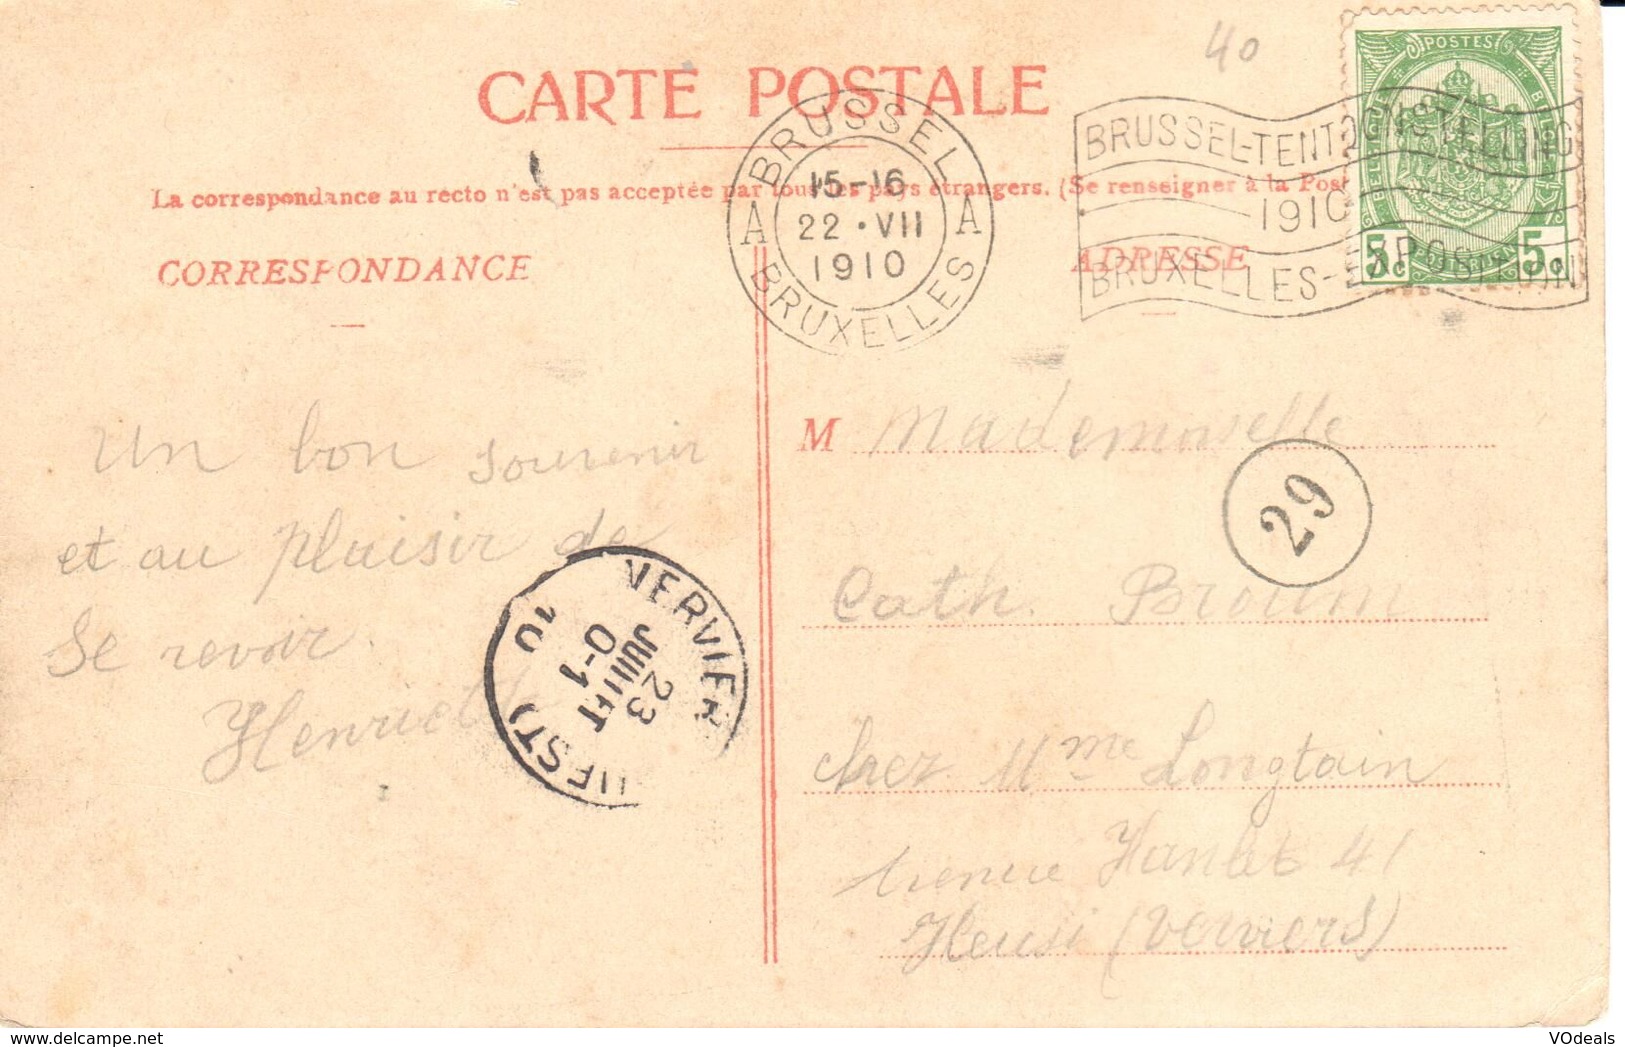 40
CARTE POSTALE
POSTES
BRUSSEL
A 15-16 A
22 · VII
1910
BRUXELLES
BRUSSEL-TENTOONSTELLING
1910
BRUXELLES-EXPOSITION
5c 5c
La correspondance au recto n'est pas acceptée par tous les pays étrangers. (Se renseigner à la Post
CORRESPONDANCE
ADRESSE
Un bon souvenir
et au plaisir de
Se revoir.
Henriette
VERVIER
23
JUILLET
0-1
10
UEST)
M Mademoiselle
29
Cath.
chez Mme Longtain
41
Heusi (Verviers)
VOdeals